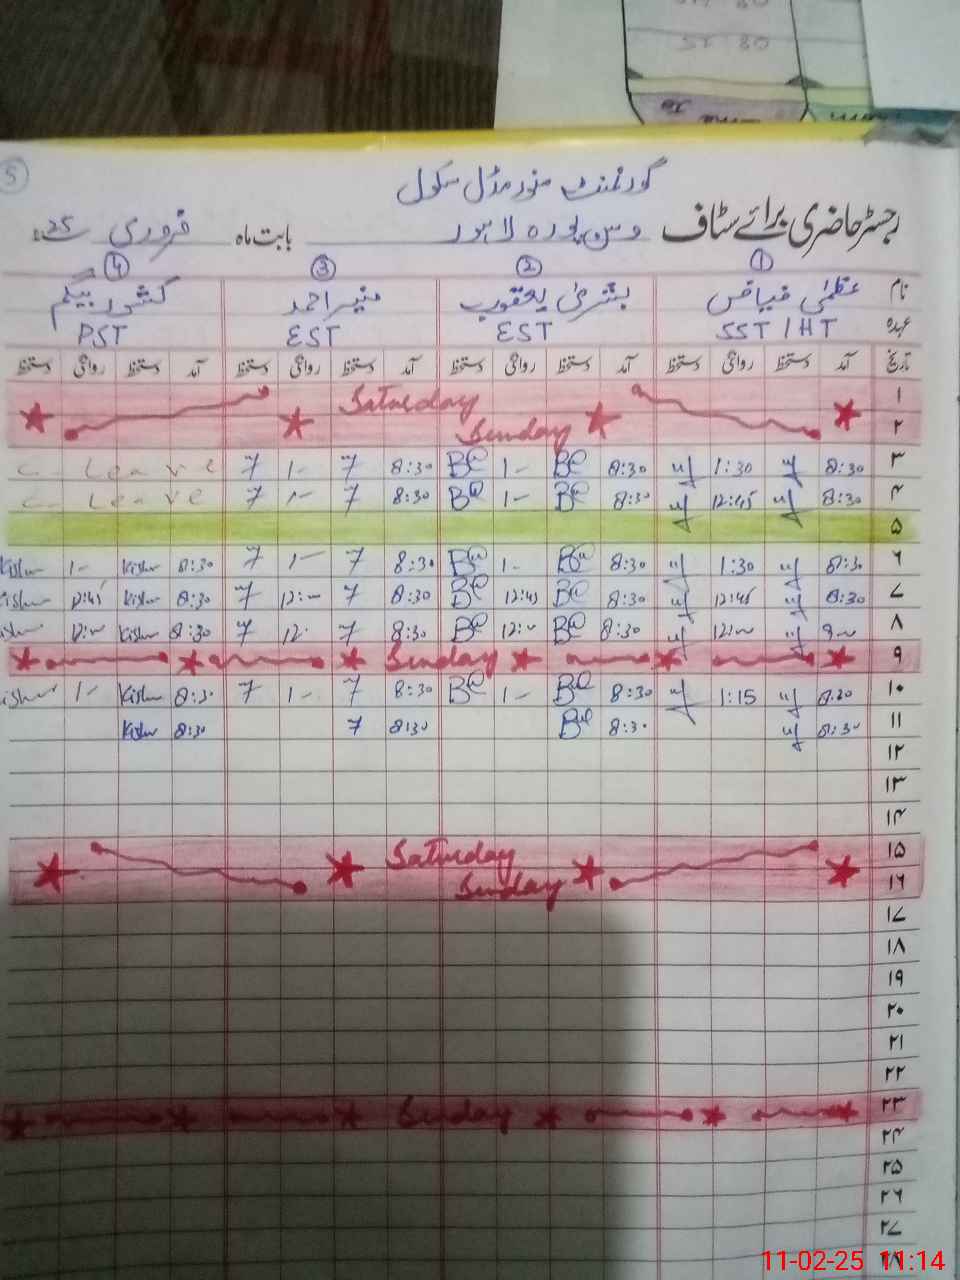 5
گورنمنٹ منور مڈل سکول
رجسٹر حاضری برائے سٹاف وسن پورہ لاہور بابت ماہ فروری 25ء
① ② ③ ④
نام عظمٰی فیاض بشریٰ یعقوب منیر احمد کشور بیگم
عہدہ SST / HT EST EST PST
تاریخ آمد دستخط روانگی دستخط آمد دستخط روانگی دستخط آمد دستخط روانگی دستخط آمد دستخط روانگی دستخط
۱ Saturday
۲ Sunday
۳ 8:30 1:30 8:30 1- 8:30 7 1- 7 C- Leave
۴ 8:30 12:45 8:30 1- 8:30 7 1- 7 C- Leave
۵
۶ 8:30 1:30 8:30 1- 8:30 7 1- 7 8:30 Kishw 1- Kishw
۷ 8:30 12:45 8:30 12:45 8:30 7 12:- 7 8:30 Kishw 12:45 Kishw
۸ 9- 12:- 8:30 12:- 8:30 7 12:- 7 8:30 Kishw 12:- Kishw
۹ Sunday
۱۰ 8:20 1:15 8:30 1- 8:30 7 1- 7 8:30 Kishw 1- Kishw
۱۱ 8:30 8:30 8:30 7 8:30 Kishw
۱۲
۱۳
۱۴
۱۵ Saturday
۱۶ Sunday
۱۷
۱۸
۱۹
۲۰
۲۱
۲۲
۲۳ Sunday
۲۴
۲۵
۲۶
۲۷
۲۸
11-02-25 11:14